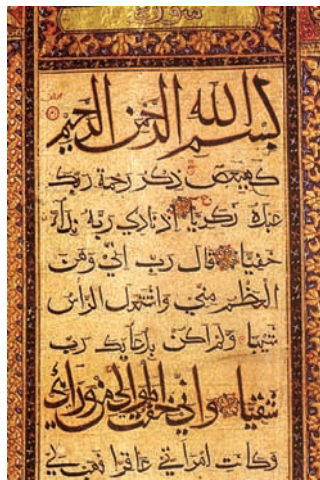 بسم الله الرحمن الرحيم
كهيعص ذكر رحمة ربك
عبده زكريا إذ نادى ربه نداء
خفيا قال رب اني وهن
العظم مني واشتعل الرأس
شيبا ولم اكن بدعائك رب
شقيا واني خفت الموالي من ورائي
وكانت امرأتي عاقرا فهب لي